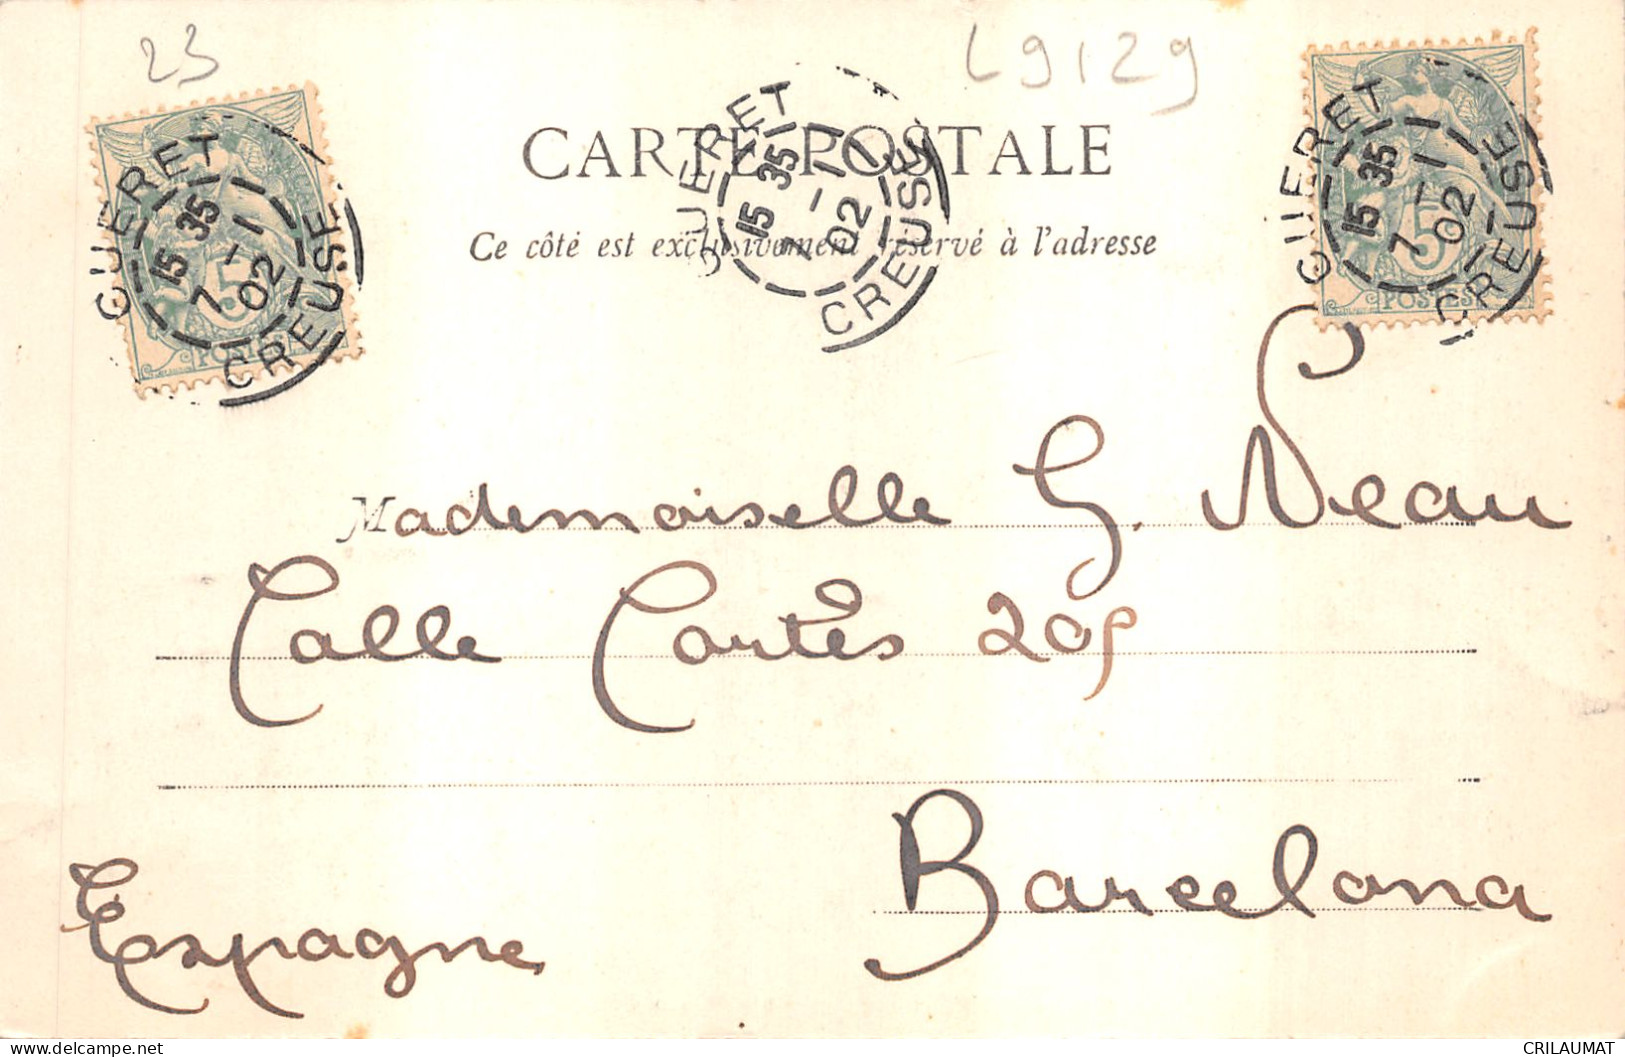 23
L9129
CARTE POSTALE
Ce côté est exclusivement réservé à l'adresse
GUERET
15 35
7 -1
02
CREUSE
GUERET
15 35
7 -1
02
CREUSE
GUERET
15 35
7 -1
02
CREUSE
5
POSTES
5
POSTES
Mademoiselle G. Neau
Calle Cortès
Barcelona
Espagne
CRILAUMAT